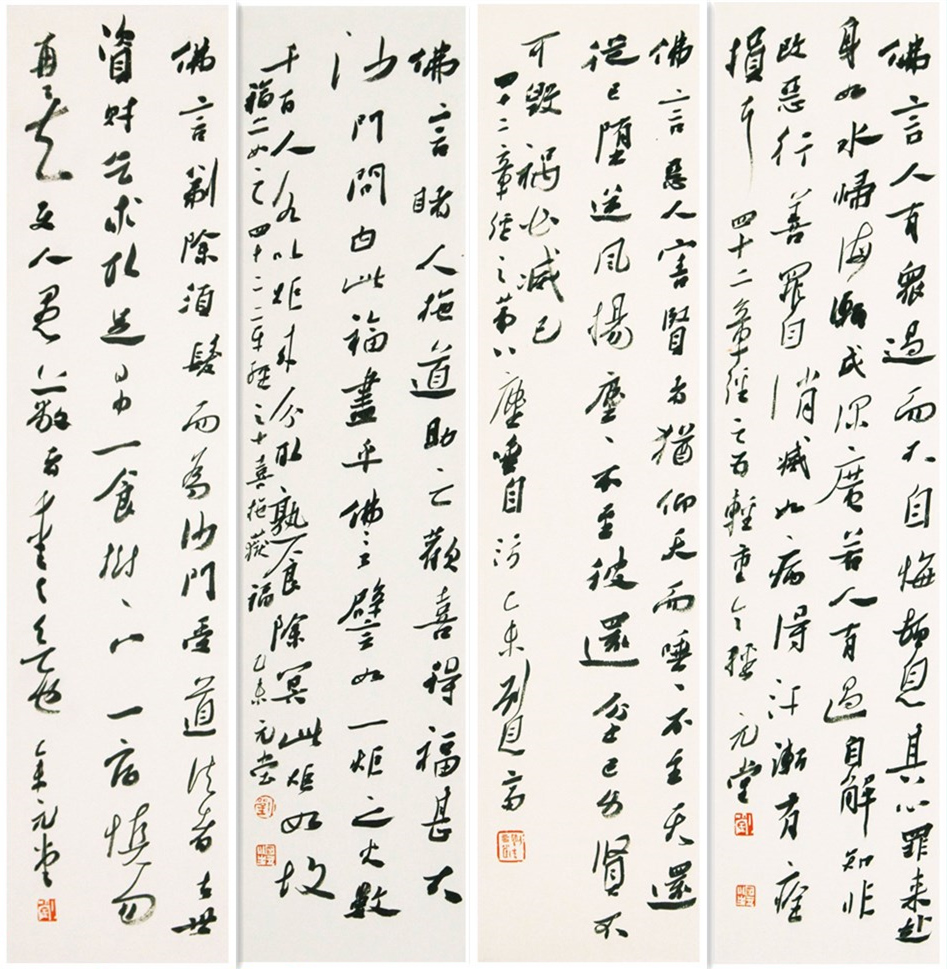 佛言人有眾過而不自悔頓息其心罪来赴
身如水歸海漸成深廣若人有過自解知非
改惡行善罪自消滅如病得汗漸有痊
損耳 四十二章經之五輕重令轉 元堂
佛言惡人害賢者猶仰天而唾、不至天還
從己墮逆風揚塵、不至彼還坌己身賢不
可毀禍必滅己
四十二章經之第八塵唾自污 乙未
佛言睹人施道助之歡喜得福甚大
沙門問曰此福盡乎佛言譬如一炬之火數
千百人各以炬来分取熟食除冥此炬如故
福亦如之 四十二章經之十喜施獲福 乙未 元堂
佛言剃除須髮而為沙門受道法者去世
資財乞求取足日中一食樹下一宿慎勿
再矣使人愚蔽者愛与欲也 乙未元堂